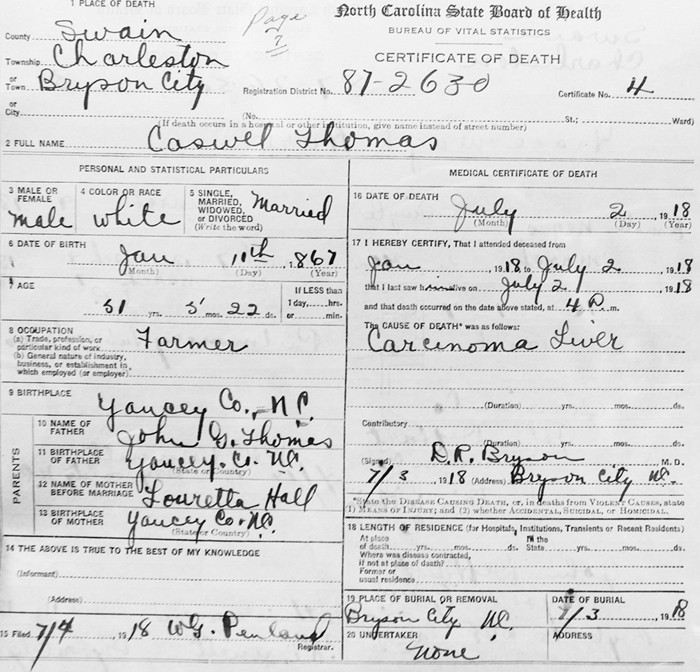 1 PLACE OF DEATH
County Swain
Township Charleston
or
Town Bryson City
or
City
Page
7
North Carolina State Board of Health
BUREAU OF VITAL STATISTICS
CERTIFICATE OF DEATH
Registration District No. 87-2630 Certificate No. 4
(No. St.; Ward)
(If death occurs in a hospital or other institution, give name instead of street number)
2 FULL NAME Caswel Thomas
PERSONAL AND STATISTICAL PARTICULARS
3 MALE OR FEMALE male
4 COLOR OR RACE white
5 SINGLE, MARRIED, WIDOWED, or DIVORCED (Write the word) Married
6 DATE OF BIRTH Jan 11th, 1867
(Month) (Day) (Year)
7 AGE
51 yrs. 5 mos. 22 ds.
If LESS than
1 day,.....hrs.
or.......min.
8 OCCUPATION
(a) Trade, profession, or
particular kind of work Farmer
(b) General nature of industry,
business, or establishment in
which employed (or employer)
9 BIRTHPLACE Yancey Co., N.C.
PARENTS
10 NAME OF
FATHER John G. Thomas
11 BIRTHPLACE
OF FATHER Yancey. Co. N.C.
(State or Country)
12 NAME OF MOTHER
BEFORE MARRIAGE Louretta Hall
13 BIRTHPLACE
OF MOTHER Yancey Co. N.C.
(State or Country)
14 THE ABOVE IS TRUE TO THE BEST OF MY KNOWLEDGE
(Informant)
(Address)
15 Filed 7/4 1918 W G. Penland
Registrar.
MEDICAL CERTIFICATE OF DEATH
16 DATE OF DEATH
July 2, 1918
(Month) (Day) (Year)
17 I HEREBY CERTIFY, That I attended deceased from
Jan, 1918, to July 2 1918
that I last saw him alive on July 2 1918
and that death occurred on the date above stated, at 4 P. m.
The CAUSE OF DEATH* was as follows:
Carcinoma Liver
(Duration) yrs. mos. ds.
Contributory
(Duration) yrs. mos. ds.
(Signed) D.R. Bryson M. D.
7/3 1918 (Address) Bryson City N.C.
*State the DISEASE CAUSING DEATH, or, in deaths from VIOLENT CAUSES, state
(1) MEANS OF INJURY; and (2) whether ACCIDENTAL, SUICIDAL, or HOMICIDAL.
18 LENGTH OF RESIDENCE (for Hospitals, Institutions, Transients or Recent Residents)
At place In the
of death.....yrs.....mos.....ds. State.....yrs.....mos.....ds.
Where was disease contracted,
if not at place of death?
Former or
usual residence
19 PLACE OF BURIAL OR REMOVAL
Bryson City N.C.
DATE OF BURIAL
7/3 1918
20 UNDERTAKER
None
ADDRESS